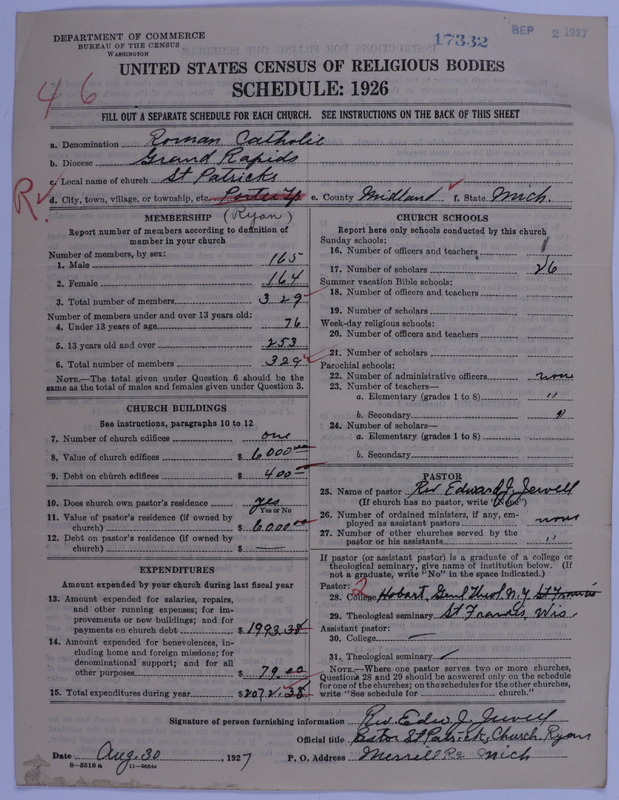 DEPARTMENT OF COMMERCE
BUREAU OF THE CENSUS
WASHINGTON
17332
SEP 2 1927
UNITED STATES CENSUS OF RELIGIOUS BODIES
SCHEDULE: 1926
46
FILL OUT A SEPARATE SCHEDULE FOR EACH CHURCH. SEE INSTRUCTIONS ON THE BACK OF THIS SHEET
a. Denomination Roman Catholic
b. Diocese Grand Rapids
c. Local name of church St Patricks
R.
d. City, town, village, or township, etc. Porter Tp e. County Midland f. State Mich.
(Ryan)
MEMBERSHIP
Report number of members according to definition of
member in your church
Number of members, by sex:
1. Male 165
2. Female 164
3. Total number of members 329
Number of members under and over 13 years old:
4. Under 13 years of age 76
5. 13 years old and over 253
6. Total number of members 329
NOTE.—The total given under Question 6 should be
same as the total of males and females given under Question 3.
CHURCH BUILDINGS
See instructions, paragraphs 10 to 12
7. Number of church edifices one
8. Value of church edifices $ 6000 00
9. Debt on church edifices $ 400 00
10. Does church own pastor's residence yes
Yes or No
11. Value of pastor's residence (if owned by
church) $ 6000 00
12. Debt on pastor's residence (if owned by
church) $ —
EXPENDITURES
Amount expended by your church during last fiscal year
13. Amount expended for salaries, repairs,
and other running expenses; for im-
provements or new buildings; and for
payments on church debt $ 1993.38
14. Amount expended for benevolences, in-
cluding home and foreign missions; for
denominational support; and for all
other purposes $ 79.00
15. Total expenditures during year $ 2072.38
CHURCH SCHOOLS
Report here only schools conducted by this church
Sunday schools:
16. Number of officers and teachers 1
17. Number of scholars 26
Summer vacation Bible schools:
18. Number of officers and teachers
19. Number of scholars
Week-day religious schools:
20. Number of officers and teachers
21. Number of scholars
Parochial schools:
22. Number of administrative officers none
23. Number of teachers—
a. Elementary (grades 1 to 8) "
b. Secondary "
24. Number of scholars—
a. Elementary (grades 1 to 8)
b. Secondary
PASTOR
25. Name of pastor Rev Edward J. Jewell
(If church has no pastor, write "None")
26. Number of ordained ministers, if any, em-
ployed as assistant pastors none
27. Number of other churches served by the
pastor or his assistants "
If pastor (or assistant pastor) is a graduate of a college or
theological seminary, give name of institution below. (If
not a graduate, write "No" in the space indicated.)
Pastor: 2
28. College Hobart, Genl Theol. N.Y. St Francis
29. Theological seminary St Francis, Wis.
Assistant pastor:
30. College —
31. Theological seminary —
NOTE.—Where one pastor serves two or more churches,
Questions 28 and 29 should be answered only on the schedule
for one of the churches; on the schedules for the other churches,
write "See schedule for church."
Signature of person furnishing information Rev. Edw. J. Jewell
Official title Pastor St Patrick's Church Ryan
Date Aug. 30, 1927 P. O. Address Merrill R2 Mich
8—5518 a 11—9064a